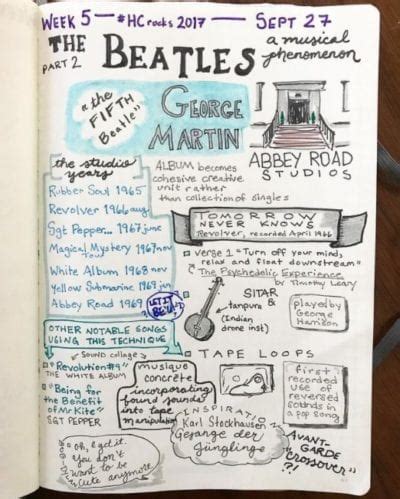 WEEK 5 — #HCrocks 2017 — SEPT 27
THE BEATLES
PART 2
a musical
phenomenon
"the
FIFTH
Beatle"
GEORGE
MARTIN
ABBEY ROAD
STUDIOS
the studio
years
Rubber Soul 1965
Revolver 1966 aug
Sgt Pepper... 1967 june
Magical Mystery 1967 nov
Tour
White Album 1968 nov
Yellow Submarine 1969 jan
Abbey Road 1969
LET IT
BE
ALBUM becomes
cohesive creative
unit rather
than collection of singles
TOMORROW
NEVER KNOWS
Revolver, recorded April 1966
verse 1 "Turn off your mind,
relax and float downstream"
The Psychedelic Experience
by Timothy Leary
SITAR
&
tanpura
(Indian
drone inst)
played by
George
Harrison
OTHER NOTABLE SONGS
USING THIS TECHNIQUE
SOUND collage
"Revolution #9"
THE WHITE ALBUM
"Being for
the Benefit
of Mr Kite"
SGT PEPPER
TAPE LOOPS
musique
concrete
incorporating
found sounds
into tape
manipulation
first
recorded
use of
reversed
sounds in
a pop song
INSPIRATION
Karl Stockhausen
Gesange der
Jünglinge
AVANT-
GARDE
"crossover"
?!
oh, I get it.
You don't
want to be
cute anymore